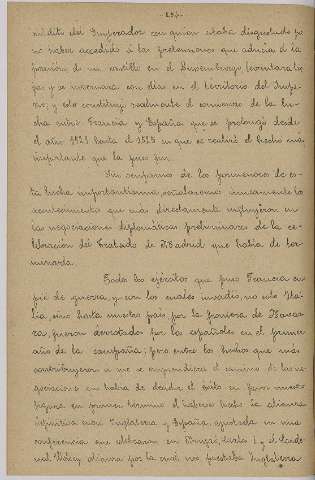 súbdito del Emperador con quien estaba disgustado por
no haber accedido á las pretensiones que aducía á la
posesión de un castillo en el Luxemburgo, levantara tro
pas y se internara con ellas en el territorio del Impe-
rio; y esto constituyó realmente el comienzo de la lu-
cha entre Francia y España que se prolongó desde
el año 1521 hasta el 1525 en que se realizó el hecho más
importante que la puso fin.
Sin ocuparnos de los pormenores de es-
ta lucha importantísima, señalaremos únicamente los
acontecimientos que más directamente influyeron en
las negociaciones diplomáticas preliminares de la ce-
lebración del Tratado de Madrid que había de ter-
minarla.
Todos los ejércitos que puso Francia en
pié de guerra, y con los cuales invadió, no solo Ita-
lia, sino hasta nuestro país por la frontera de Navar-
ra, fueron derrotados por los españoles en el primer
año de la campaña; pero entre los hechos que más
contribuyeron á que se emprendiera el camino de las ne-
gociaciones en había de decidir el éxito en favor nuestro
figura en primer término el haberse hecho la alianza
definitiva entre Inglaterra y España, ajustada en una
conferencia que celebraron en Brujas, Carlos I y el Carde-
nal Wolsey, alianza por la cual nos prestaba Inglaterra